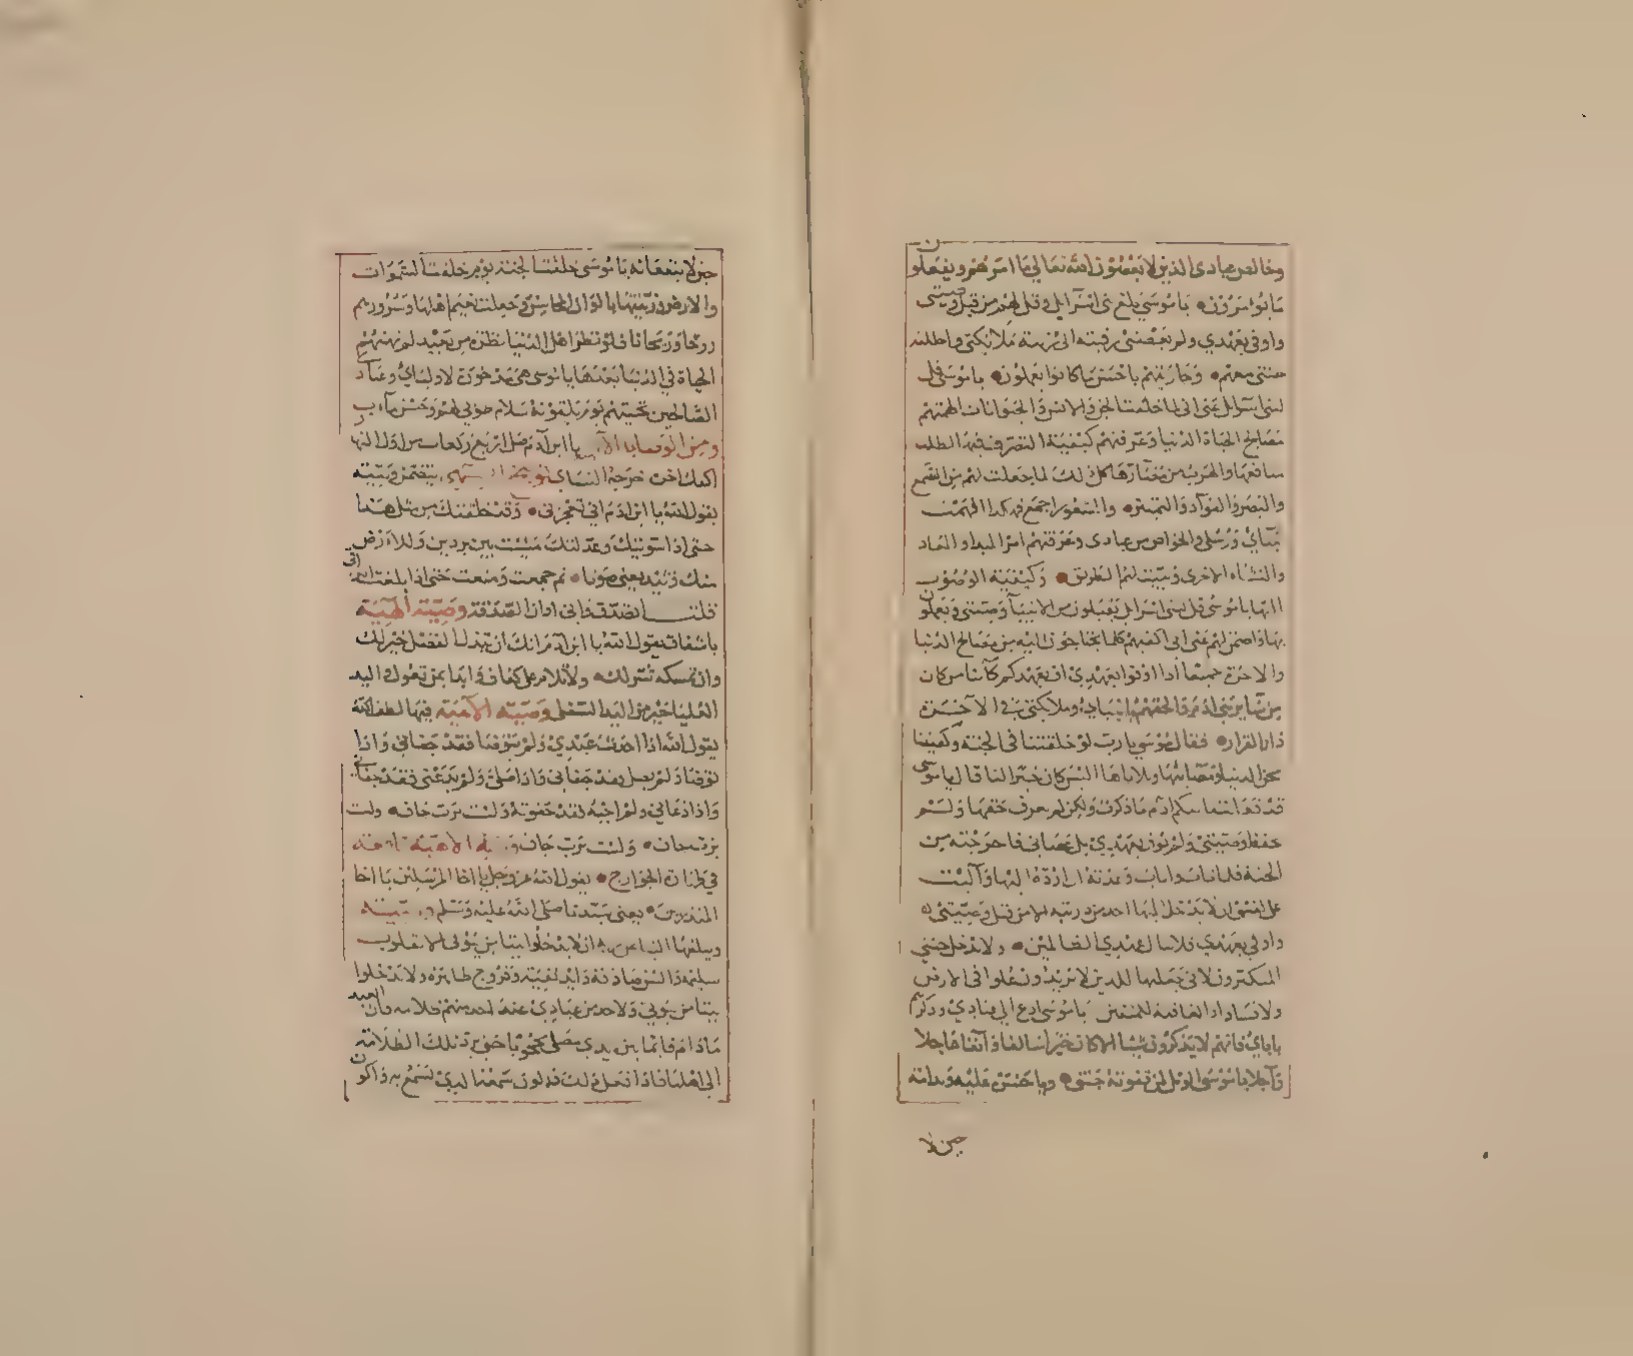 وخالص عبادى الذين لا يعصون الله تعالى ما امرهم ويفعلون
ما يؤمرون يا موسى بلغ بنى اسرائيل وقل لهم من قبل وصيتى
واوفى بعهدي ولم يعصنى رقيته الى رتبة ملائكتى وادخلته
جنتى معهم وجازيتهم باحسن ما كانوا يعملون يا موسى قل
لبنى اسرائيل عنى انى لما خلقت الجن والانس والحيوانات الهمتهم
مصالح الحياة الدنيا وعرفتهم كيفية التصرف فيها لطلب
منافعها والهرب من مضارها كل ذلك لما جعلت لهم من السمع
والبصر والفواد والتمييز والشعور اجمع فهكذا الهمت
انبيائى ورسلى والخواص من عبادى وعرفتهم امر المبدا والمعاد
والنشاه الاخرى وبينت لهم الطريق وكيفية الوصول
اليها يا موسى قل لبنى اسرائيل يقبلون من الانبيآ وصيتى ويعملون
بها واضمن لهم عنى انى اكفيهم كلما يحتاجون اليه من مصالح الدنيا
والاخرة جميعا اذا اوفوا بعهدي اوف بعهدكم كآئنا من كان
من بنى ادم والحقتهم بانبيادى وملائكتى فى الاخرة
دار القرار فقال موسى يا رب لو خلقتنا فى الجنة وكفيتنا
محن الدنيا ومصائبها وبلاياها اليس كان خيرا لنا قال يا موسى
قد فعلت بابيكم ادم ما ذكرت ولكن لم يعرف حقها ولم
يحفظ وصيتى ولم يوف بعهدي بل عصانى فاخرجته من
الجنة فلما تاب واناب وعدته ان ارده اليها وآليت
على نفسى ان لا يدخل اليها احد من ذريته الا من قبل وصيتى
واوفى بعهدي فلا ينال عهدي الظالمين ولا يدخل جنتي
المتكبرون لانى جعلتها للذين لا يريدون علوا فى الارض
ولا فسادا والعاقبة للمتقين يا موسى ادع الى عبادي وذكرهم
باياي فانهم لا يذكرون شيئا الا كان خيرا سالفا وآنفا عاجلا
وآجلا يا موسى الويل لمن تفوته جنتى ويا حسرة عليه وندامة
حين لا
حين لا ينفعانه يا موسى خلقت الجنة يوم خلقت السموات
والارض وزينتها بالوان المحاسن وجعلت نعيم اهلها وسرورهم
روحا وريحانا فلو نظر اهل الدنيا نظرة من بعيد لم تهنهم
الحياة في الدنيا بعدها يا موسى هي مدخورة لاوليائى وعباد
الصالحين تحيتهم يوم يلقونه سلام طوبى لهم وحسن مآب
ومن الوصايا يا ابن آدم صل اربع ركعات من اول النهار
اكفك اخره خرجه النسائى
يقول الله يا ابن ادم انى تعجزنى وقد خلقتك من مثل هذا
حتى اذا سويتك وعدلتك مشيت بين بردين وللارض
منك وئيد يعنى صوتا ثم جمعت ومنعت حتى اذا بلغت التراقى
قلت اتصدق وانى اوان الصدقة وصية الهية
باشفاق يقول الله يا ابن آدم انك ان تبذل الفضل خير لك
وان تمسكه شر لك ولا تلام على كفاف وابدا بمن تعول واليد
العليا خير من اليد السفلى وصية الاهية فيها لطف
يقول الله اذا احدث عبدي ولم يتوضا فقد جفانى واذا
توضا ولم يصل فقد جفانى واذا صلى ولم يدعنى فقد جفانى
واذا دعانى ولم اجبه فقد جفوته ولست برب جاف ولست
برب جاف ولست برب جاف
يقول الله عز وجل يا اخا المرسلين يا اخا
المنذرين يعنى سيدنا صلى الله عليه وسلم
ان لا يدخلوا بيتا من بيوتى الا بقلوب
سليمة والسن صادقة وايد نقية وفروج طاهره ولا يدخلوا
بيتا من بيوتى ولاحد من عبادى عند احد منهم ظلامه فان العبد
ما دام قائما بين يدي يصلى حتى يرد تلك الظلامة
الى اهلها فاذا فعل ذلك فاكون سمعه الذي يسمع به واكون